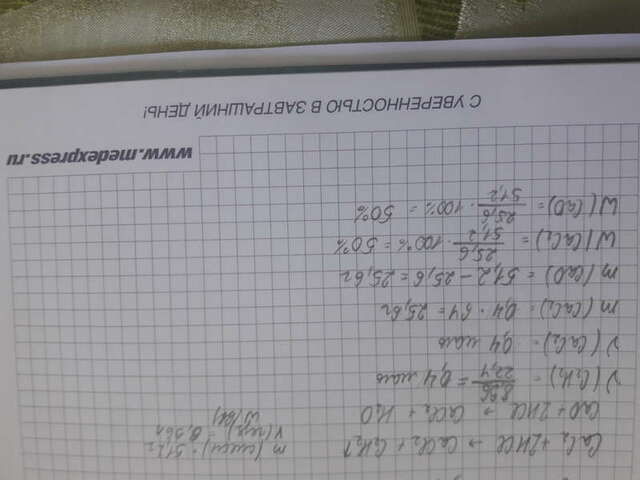 CaC₂ + 2HCl → CaCl₂ + C₂H₂↑
CaO + 2HCl → CaCl₂ + H₂O
ν(C₂H₂) = 8,96/22,4 = 0,4 моль
ν(CaC₂) = 0,4 моль
m(CaC₂) = 0,4 · 64 = 25,6 г
m(CaO) = 51,2 - 25,6 = 25,6 г
W(CaC₂) = 25,6/51,2 · 100% = 50%
W(CaO) = 25,6/51,2 · 100% = 50%
m(смеси) = 51,2 г
V(газа) = 8,96 л
www.medexpress.ru
С УВЕРЕННОСТЬЮ В ЗАВТРАШНИЙ ДЕНЬ!